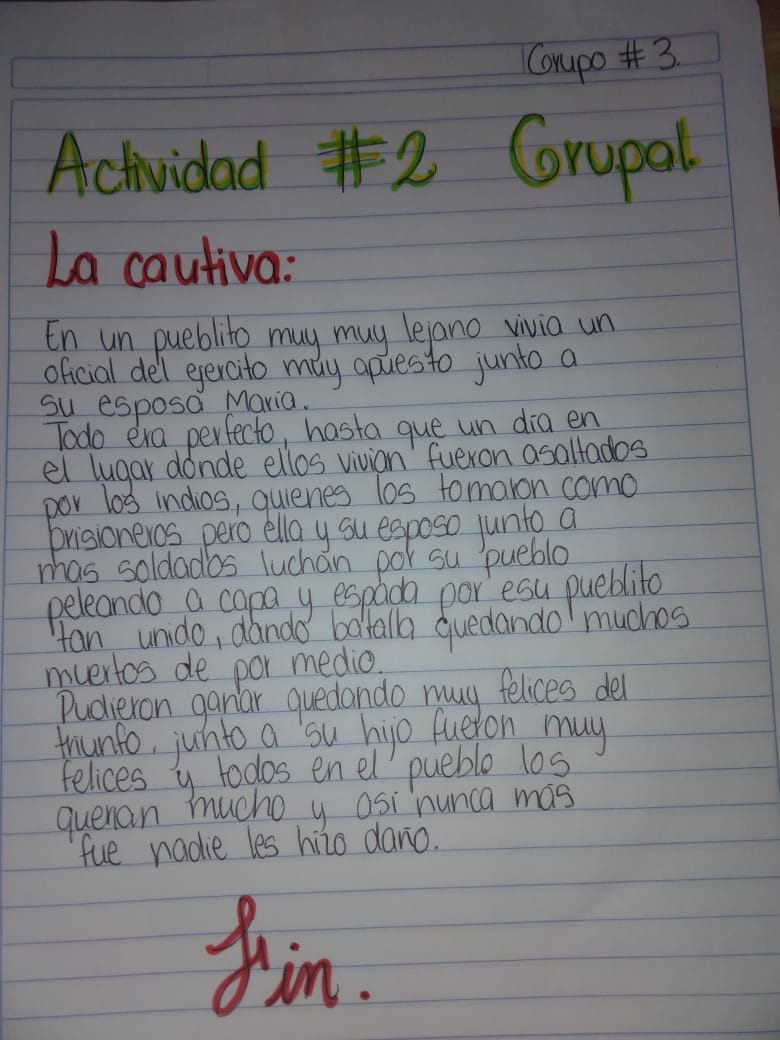 Grupo # 3.
Actividad #2 Grupal.
La cautiva:
En un pueblito muy muy lejano vivia un
oficial del ejercito muy apuesto junto a
su esposa Maria.
Todo era perfecto, hasta que un dia en
el lugar donde ellos vivian fueron asaltados
por los indios, quienes los tomaron como
prisioneros pero ella y su esposo junto a
mas soldados luchan por su pueblo
peleando a capa y espada por esu pueblito
tan unido, dando batalla quedando muchos
muertos de por medio.
Pudieron ganar quedando muy felices del
triunfo, junto a su hijo fueron muy
felices y todos en el pueblo los
querian mucho y asi nunca más
fue nadie les hizo daño.
Fin.